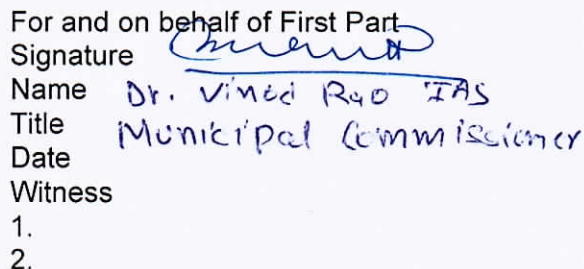 For and on behalf of First Part
Signature
Name Dr. Vinod Rao IAS
Title Municipal Commissioner
Date
Witness
1.
2.